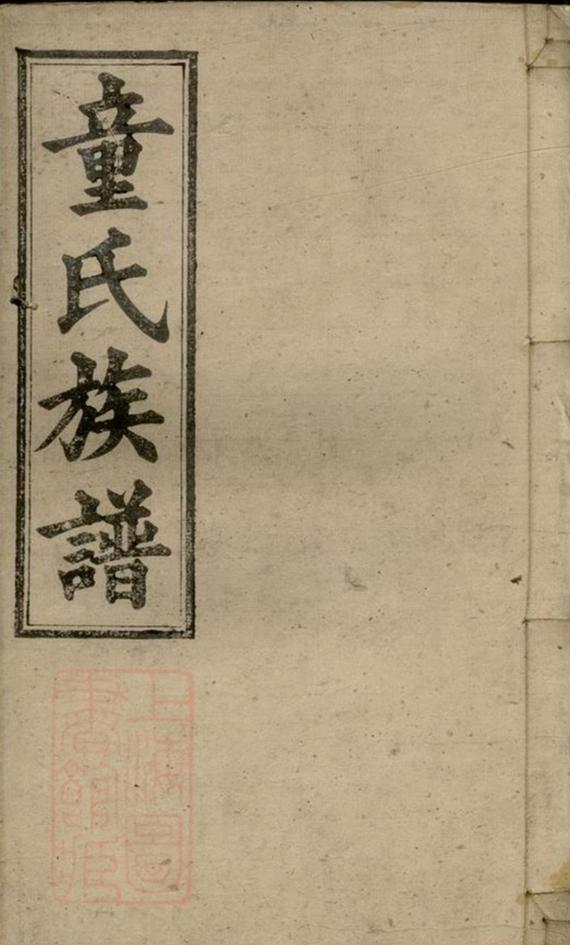 童氏族譜
上海圖
書館藏